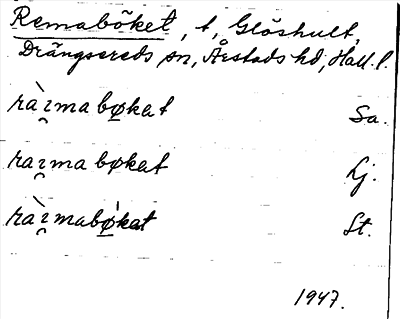 Remaböket, t, Glöshult,
Drängsereds sn, Årstads hd, Hall. l.
ràɪ̯mabøkat Sa.
raɪ̯mabøkat Lj.
ràɪ̯mabøkat St.
1947.